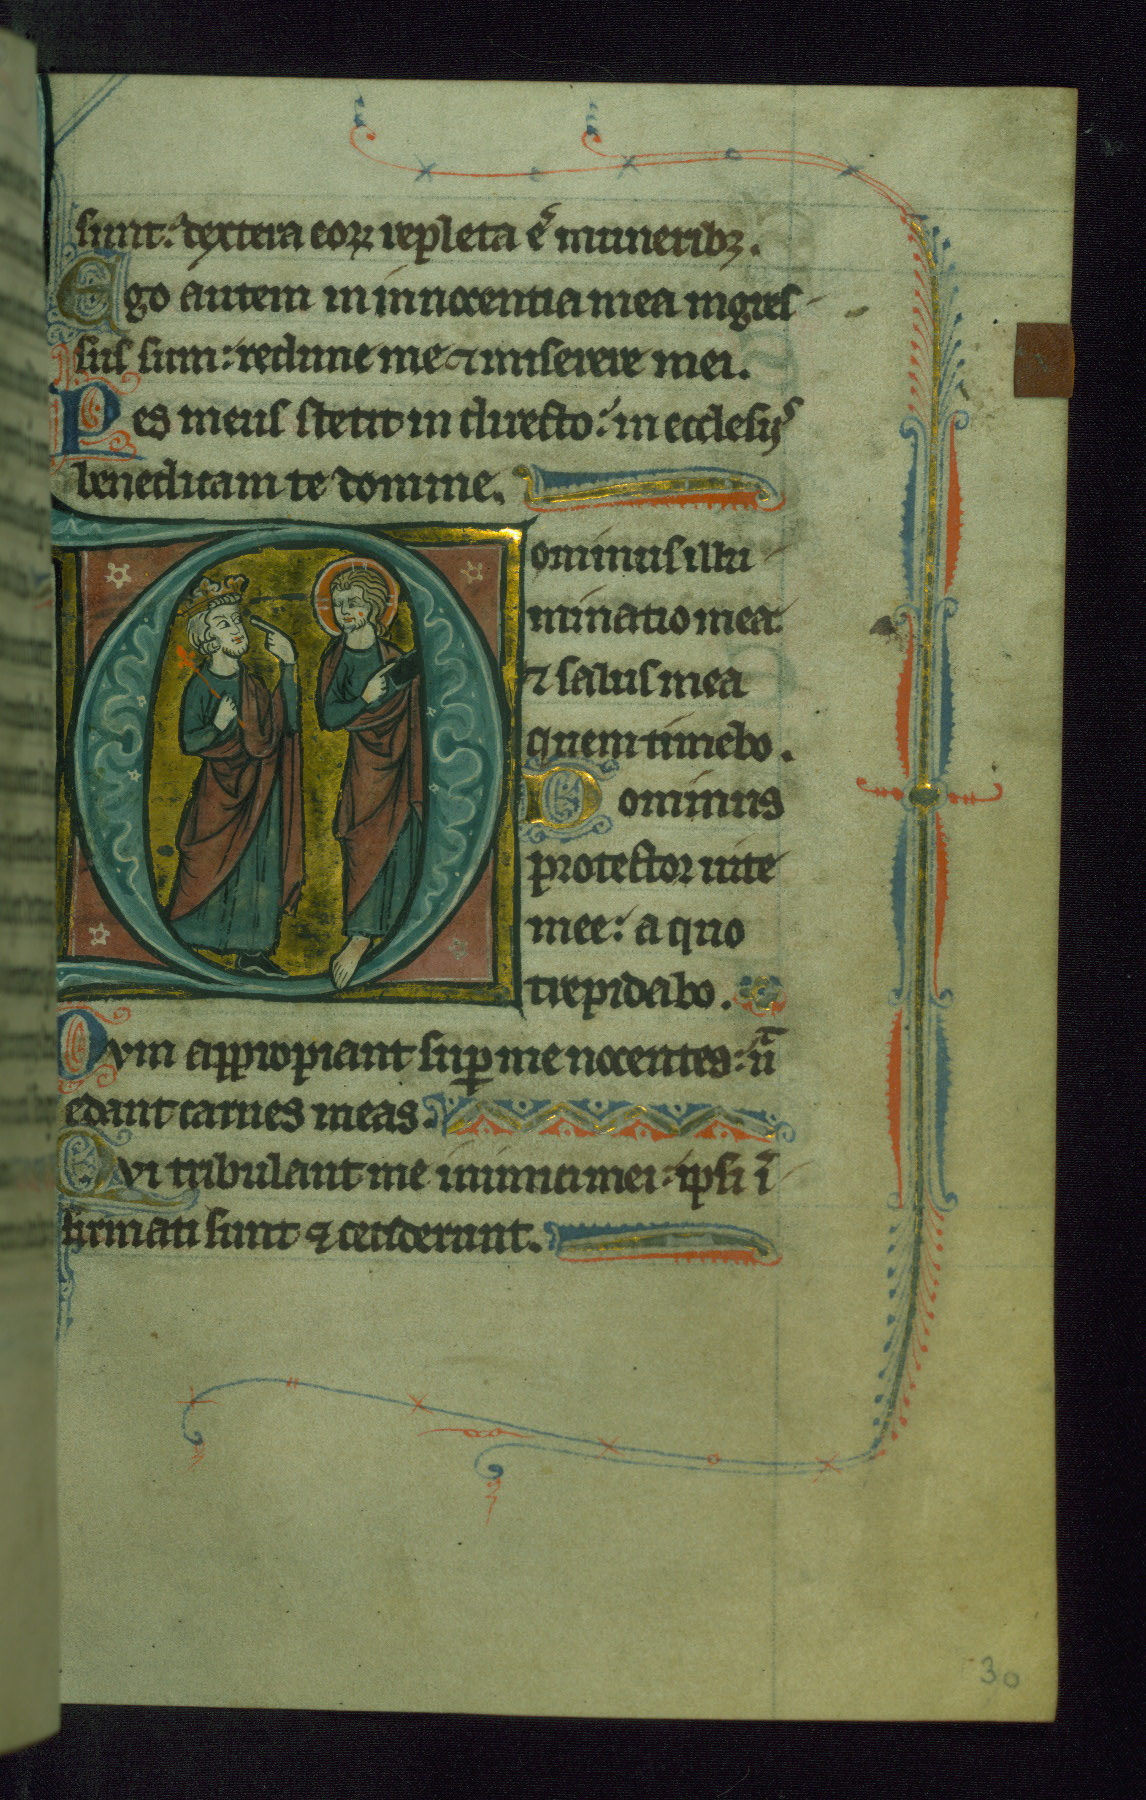 sunt: dextera eoꝝ repleta ē muneribꝫ.
Ego autem in innocentia mea ingres-
sus sum: redime me ⁊ miserere mei.
Pes meus stetit in directo: in ecclesijs
benedicam te domine.
Dominus illu-
minatio mea:
⁊ salus mea
quem timebo.
Dominus
protector uite
mee: a quo
trepidabo.
Dum appropiant suꝑ me nocentes: ut
edant carnes meas.
Qui tribulant me inimici mei: ipsi ī-
firmati sunt ⁊ ceciderunt.
30